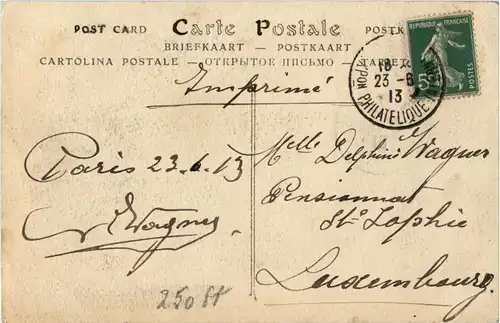 POST CARD Carte Postale POSTK
BRIEFKAART — POSTKAART
CARTOLINA POSTALE — ОТКРЫТОЕ ПИСЬМО —
Imprimé
REPUBLIQUE FRANÇAISE
POSTES
18
23 - 6
13
PHILATELIQUE
Paris 23.6.13
Wagner
Melle Delphine Wagner
Pensionnat
Ste Sophie
Luxembourg
250